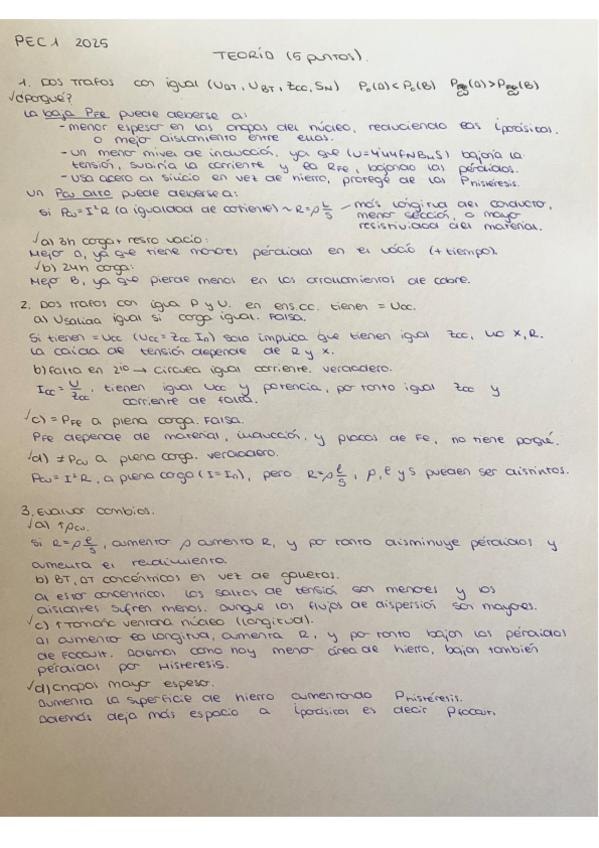 PEC 1 2025
TEORÍA (5 puntos).
1. Dos trafos con igual (UAT, UBT, Zcc, SN) Po(A)<Po(B) Pcc(A)>Pcc(B)
✓¿Porqué?
La baja PFe puede deberse a:
- menor espesor en las chapas del núcleo, reduciendo las iparásitas.
o mejor aislamiento entre ellas.
- un menor nivel de inducción, ya que (U=4'44fNBmS) bajaría la
tensión, subiría la corriente y la RFe, bajando las pérdidas.
- usa acero al silicio en vez de hierro, protege de las Phistéresis.
Un Pcu alto puede deberse a:
Si Pcu=I²R (a igualdad de corriente) ~ R=ρ l/S - más longitud del conducto,
menor sección, o mayor
resistividad del material.
✓a) 3h carga + resto vacío:
Mejor A, ya que tiene menores pérdidas en el vacío (+ tiempo).
✓b) 24h carga:
Mejor B, ya que pierde menos en los arrollamientos de cobre.
2. Dos trafos con igual P y U. en ens.cc. tienen = Ucc.
a) Usalida igual si carga igual. Falsa.
Si tienen = Ucc (Ucc = Zcc In) solo implica que tienen igual Zcc, no X, R.
La caída de tensión depende de R y X.
b) Falta en 2io → circula igual corriente. Verdadero.
Icc = U/Zcc. tienen igual Ucc y potencia, por tanto igual Zcc y
corriente de falta.
✓c) = PFe a plena carga. Falsa.
PFe depende de material, inducción, y placas de Fe, no tiene porqué.
✓d) ≠ Pcu a plena carga. Verdadero.
Pcu = I²R, a plena carga (I=In), pero R=ρ l/S, ρ, l y S pueden ser distintos.
3. Evaluar cambios.
✓a) ↑ρcu.
Si R=ρ l/S, aumentar ρ aumenta R, y por tanto disminuye pérdidas y
aumenta el rendimiento.
b) BT, AT concéntricos en vez de galletas.
Al estar concéntricos los saltos de tensión son menores y los
aislantes sufren menos. Aunque los flujos de dispersión son mayores.
✓c) ↑Tamaño ventana núcleo (longitud).
Al aumentar la longitud, aumenta R, y por tanto bajan las pérdidas
de Focault. Además como hay menor área de hierro, bajan también
pérdidas por Histeresis.
✓d) Chapas mayor espesor.
Aumenta la superficie de hierro aumentando Phistéresis.
Además deja más espacio a iparásitas es decir Pfocault.